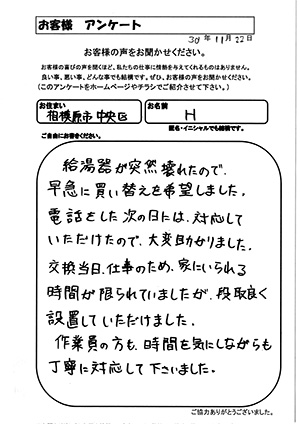 お客様 アンケート
30年 11月 22日
お客様の声をお聞かせください。
お客様の喜びの声を聞くほど、私たちの仕事に情熱を与えてくれるものはありません。
良い事、悪い事、どんな事でも結構です。ぜひ、お客様の声をお聞かせください。
(このアンケートをホームページやチラシでご紹介させて下さい。)
お住まい
相模原市 中央区
お名前
H
匿名・イニシャルでも結構です。
ご自由にお書きください。
給湯器が突然壊れたので、
早急に買い替えを希望しました。
電話をした次の日には、対応して
いただけたので、大変助かりました。
交換当日、仕事のため、家にいられる
時間が限られていましたが、段取良く
設置していただけました。
作業員の方も、時間を気にしながらも
丁寧に対応して下さいました。
ご協力ありがとうございました。